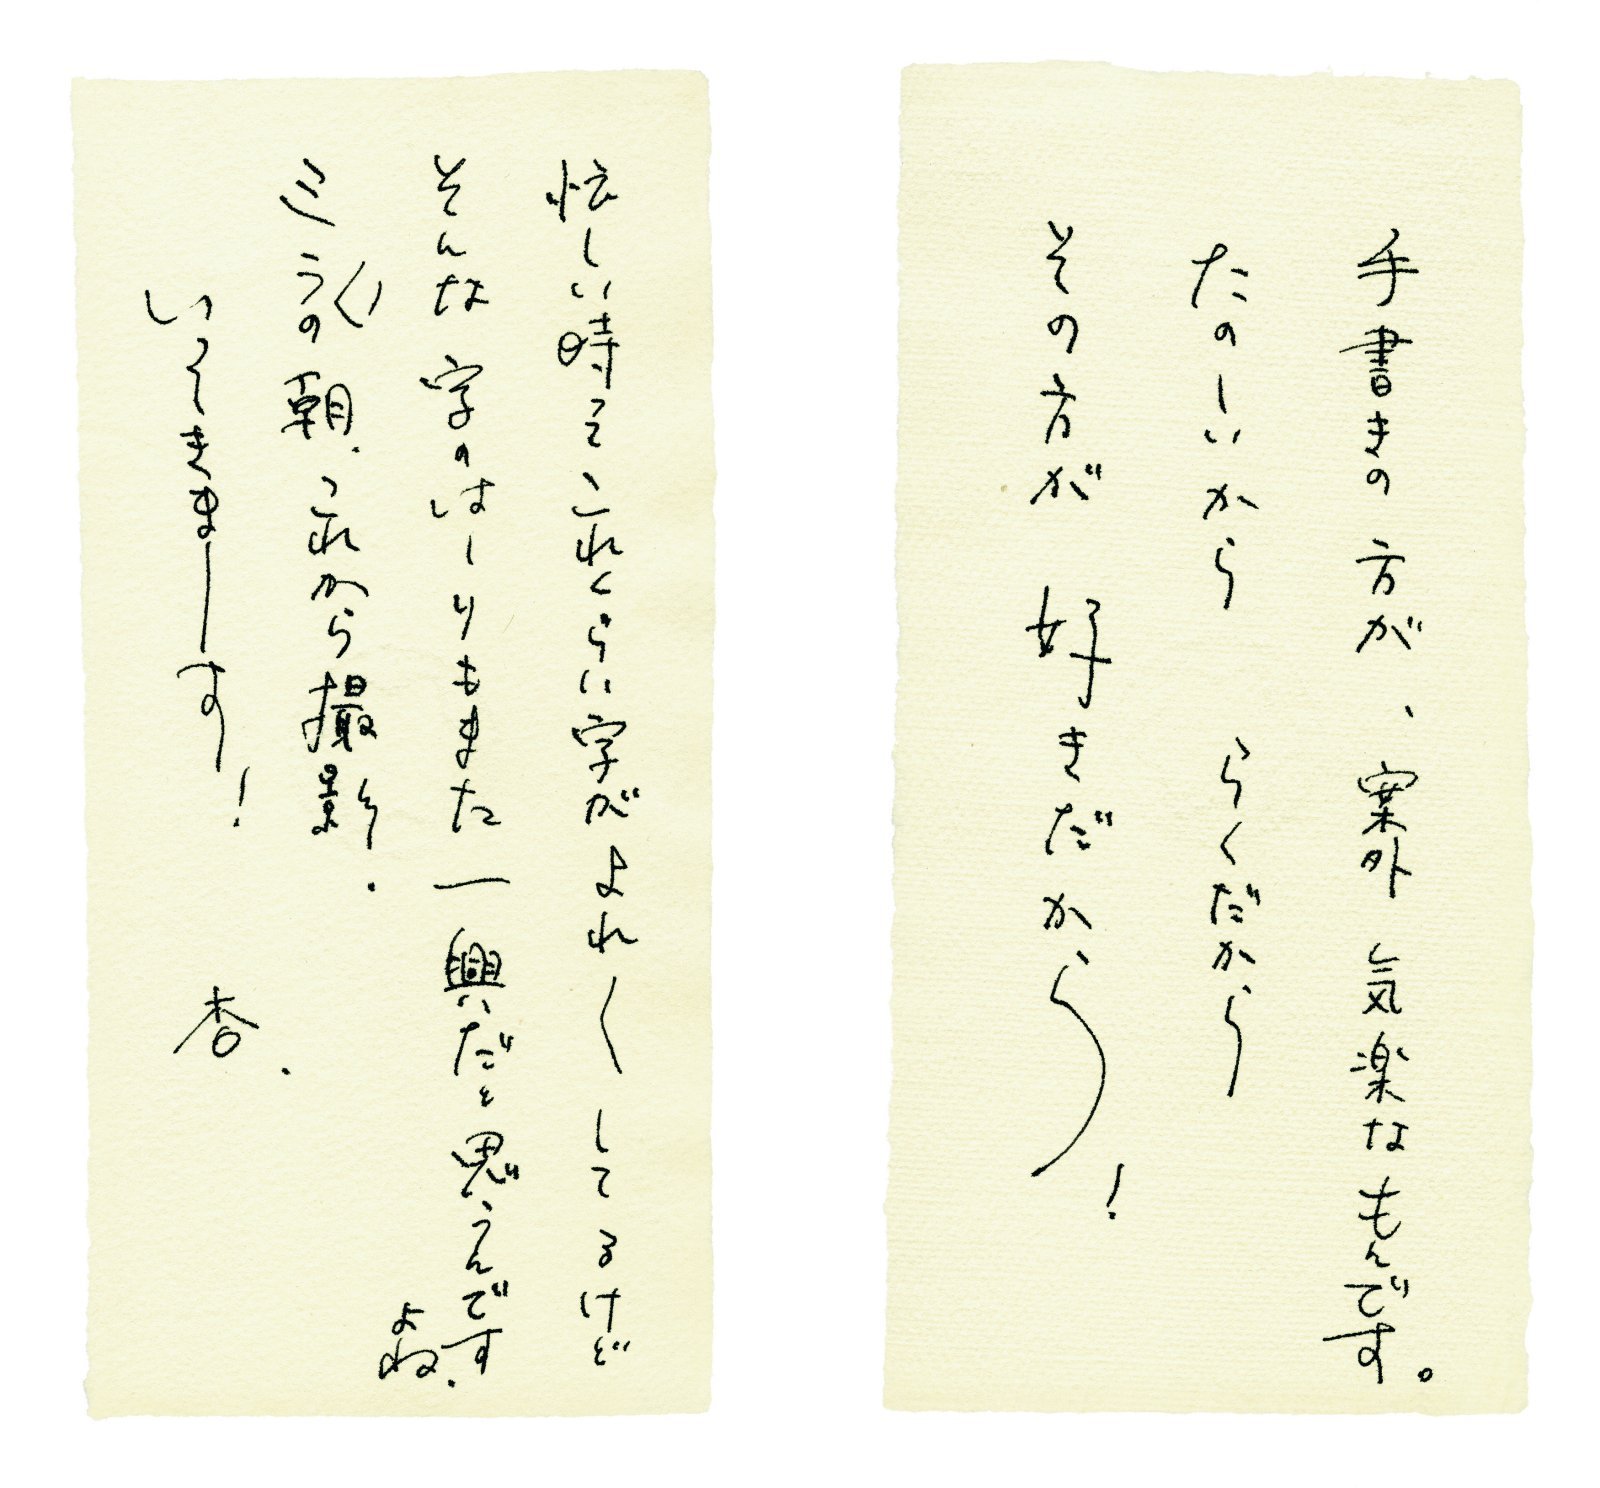 手書きの方が、案外 気楽なもんです。
たのしいから らくだから
その方が 好きだから!
忙しい時ってこれくらい字がよれ〱してるけど
そんな字のはしりもまた一興だと思うんですよね.
の朝、これから撮影.
いってきまーす! 杏.